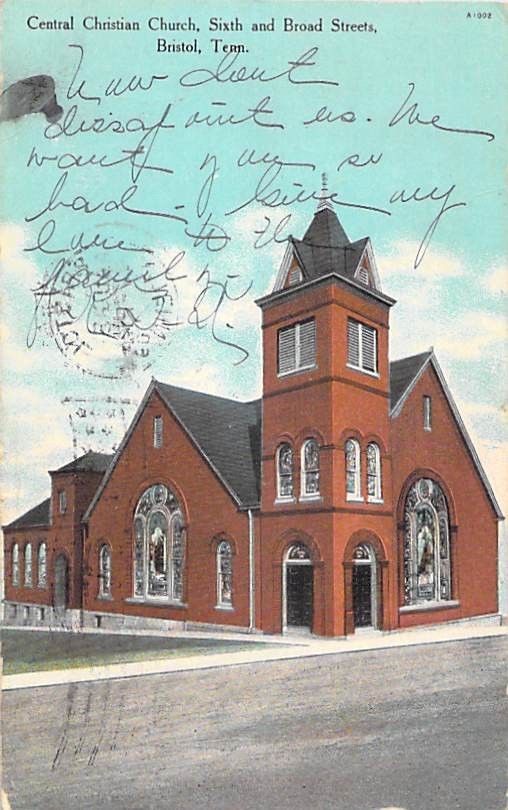 Central Christian Church, Sixth and Broad Streets,
Bristol, Tenn.
A 1002
Now dont
dissapoint us. We
want you so
bad - Give my
love to the
family